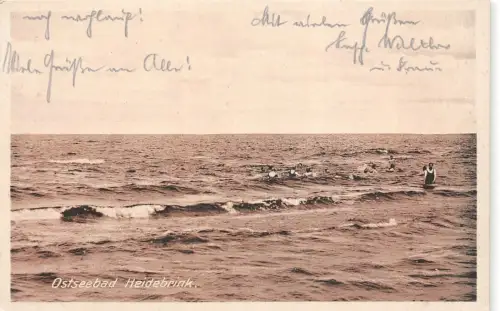 Viele Grüße an Alle!
Mit vielen Grüßen
Walter
u. Frau
Ostseebad Heidebrink.